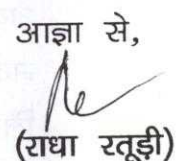 आज्ञा से,
(राधा रतूड़ी)